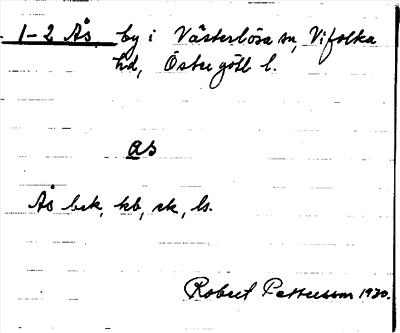 1-2 Ås, by i Västerlösa sn, Vifolka
hd, Östergötl l.
as
Ås bsk, kb, sk, ls.
Robert Pettersson 1930.